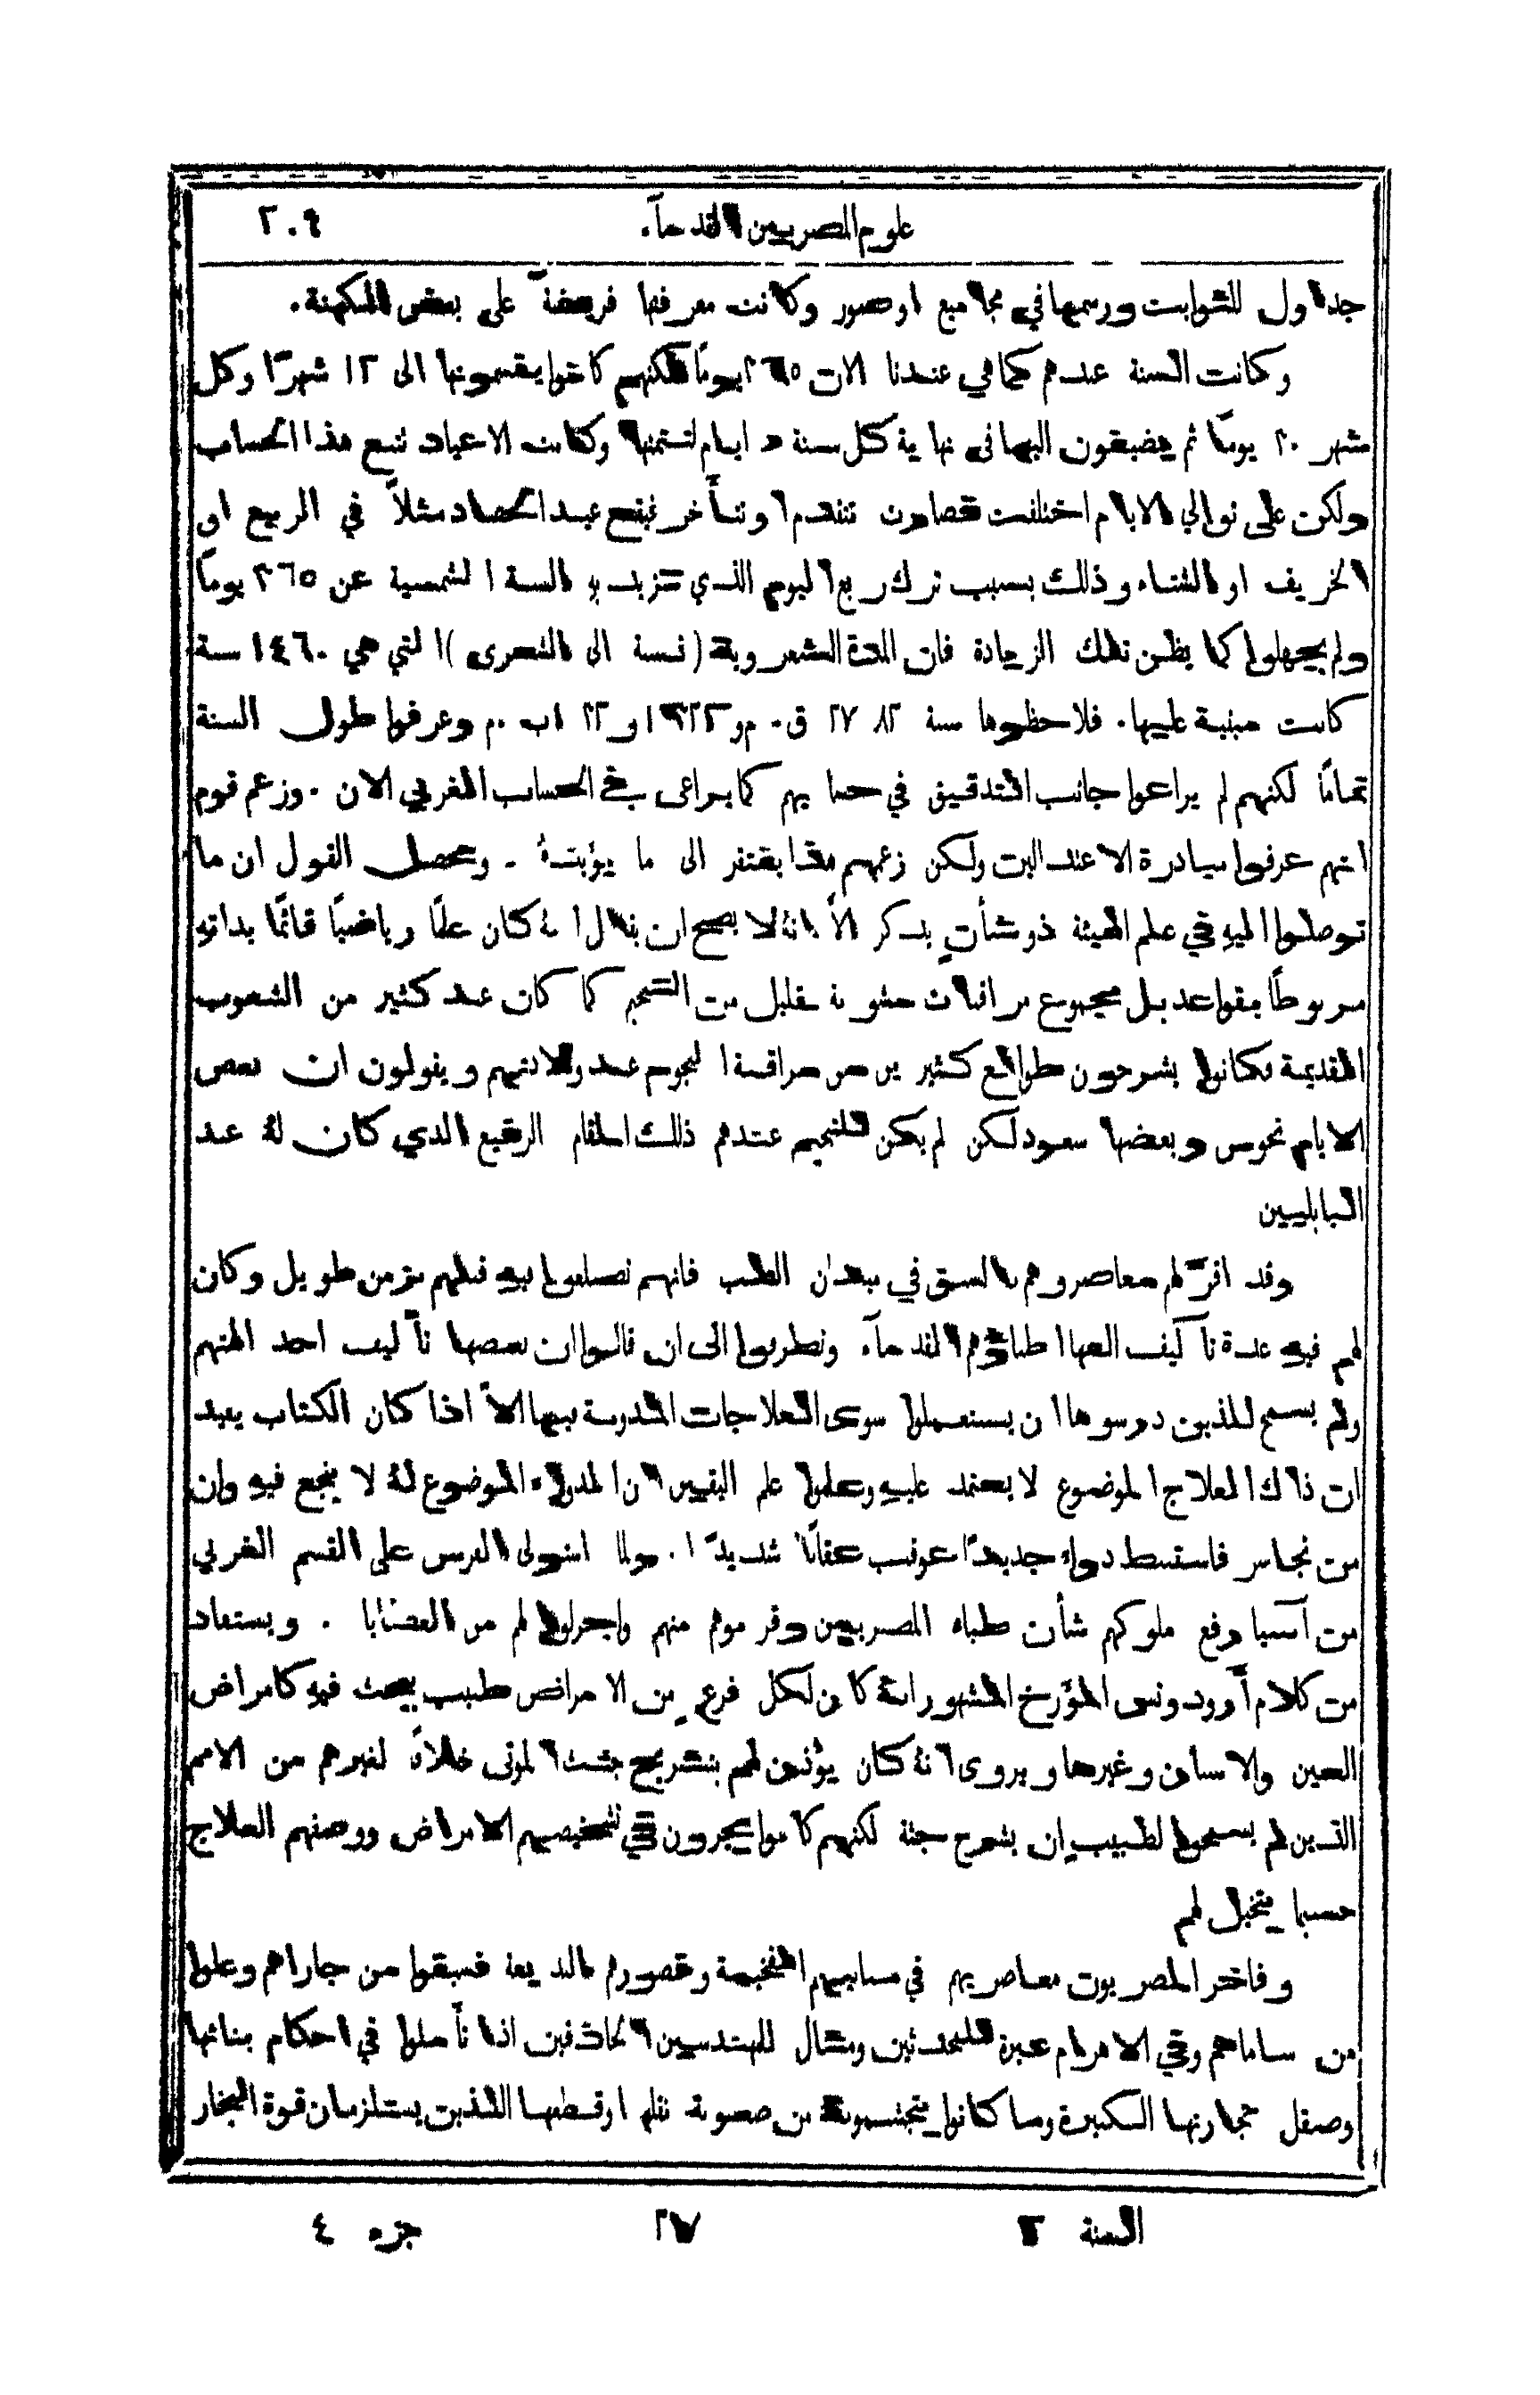 علوم المصريين القدماء. ٢٠٩
جداول للثوابت ورسمها في مجاميع او صور وكانت معرفتها فريضة على بعض الكهنة.
وكانت السنة عندهم كما هي عندنا الان ٣٦٥ يوماً لكنهم كانوا يقسمونها الى ١٢ شهرًا وكل
شهر ٣٠ يومًا ثم يضيفون اليها في نهاية كل سنة ٥ ايام لتتمتها وكانت الاعياد تتبع هذا الحساب
ولكن على توالي الايام اختلفت فصارت تتقدم او تتأخر فيقع عيد الحصاد مثلاً في الربيع او
الخريف او الشتاء وذلك بسبب ترك ربع اليوم الذي تزيد به السنة الشمسية عن ٣٦٥ يوماً
ولم يجهلوا كما يظن تلك الزيادة فان المدة الشعروية (نسبة الى الشعرى) التي هي ١٤٦٠ سنة
كانت مبنية عليها. فلاحظوها سنة ٢٧٨٢ ق. م و١٣٢٢ و ب. م وعرفوا طول السنة
تمامًا لكنهم لم يراعوا جانب التدقيق في حسابهم كما يراعى في الحساب الغربي الان. وزعم قوم
انهم عرفوا مبادرة الاعتدالين ولكن زعمهم هذا يفتقر الى ما يؤيده. ومحصل القول ان ما
توصلوا اليه في علم الهيئة ذو شأن يذكر الا انه لا يصح ان يقال انه كان علمًا رياضيًا قائمًا بذاته
مربوطًا بقواعد بل مجموع مراقبات مشوبة بقليل من التنجيم كما كان عند كثير من الشعوب
القديمة فكانوا يشرحون طوالع كثيرين من مراقبة النجوم عند ولادتهم ويقولون ان بعض
الايام نحوس وبعضها سعود لكن لم يكن للتنجيم عندهم ذلك المقام الرفيع الذي كان له عند
البابليين
وقد اقرّ لهم معاصروهم بالسبق في ميدان الطب فانهم تضلعوا فيه قبلهم بزمن طويل وكان
لهم فيه عدة تآليف الفها اطباؤهم القدماء وتطرفوا الى ان قالوا ان بعضها تأليف احد الهتهم
ولم يسمح للذين درسوها ان يستعملوا سوى العلاجات المدروسة فيها الاّ اذا كان الكتاب يفيد
ان ذاك العلاج الموضوع لا يعتمد عليه وعلموا علم اليقين ان الدواء الموضوع له لا ينجع فيه وان
من تجاسر فاستنبط دواء جديدًا عوقب عقابًا شديدًا. ولما استولى الفرس على القسم الغربي
من آسيا رفع ملوكهم شأن اطباء المصريين وقربوهم منهم واجزلوا لهم من العطايا. ويستفاد
من كلام هيرودوتس المؤرخ المشهور انه كان لكل فرع من الامراض طبيب يبحث فيه كامراض
العين والاسنان وغيرها ويروى انه كان يؤذن لهم بتشريح جثث الموتى خلافًا لغيرهم من الامم
الذين لم يسمحوا لطبيب ان يشرح جثة لكنهم كانوا يجرون في تشخيصهم الامراض ووصفهم العلاج
حسبما يتخيل لهم
وفاخر المصريون معاصريهم في مبانيهم الفخيمة وقصورهم البديعة فسبقوا من جاراهم وعلوا
من ساماهم وفي الاهرام عبرة للمحدثين ومثال للمهندسين الحاذقين اذا تأملوا في احكام بنائها
وصقل حجارتها الكبيرة وما كانوا يتجشمونه من صعوبة نقلها وقطعها اللذين يستلزمان قوة البخار
السنة ٢ ٢٧ جزء ٤